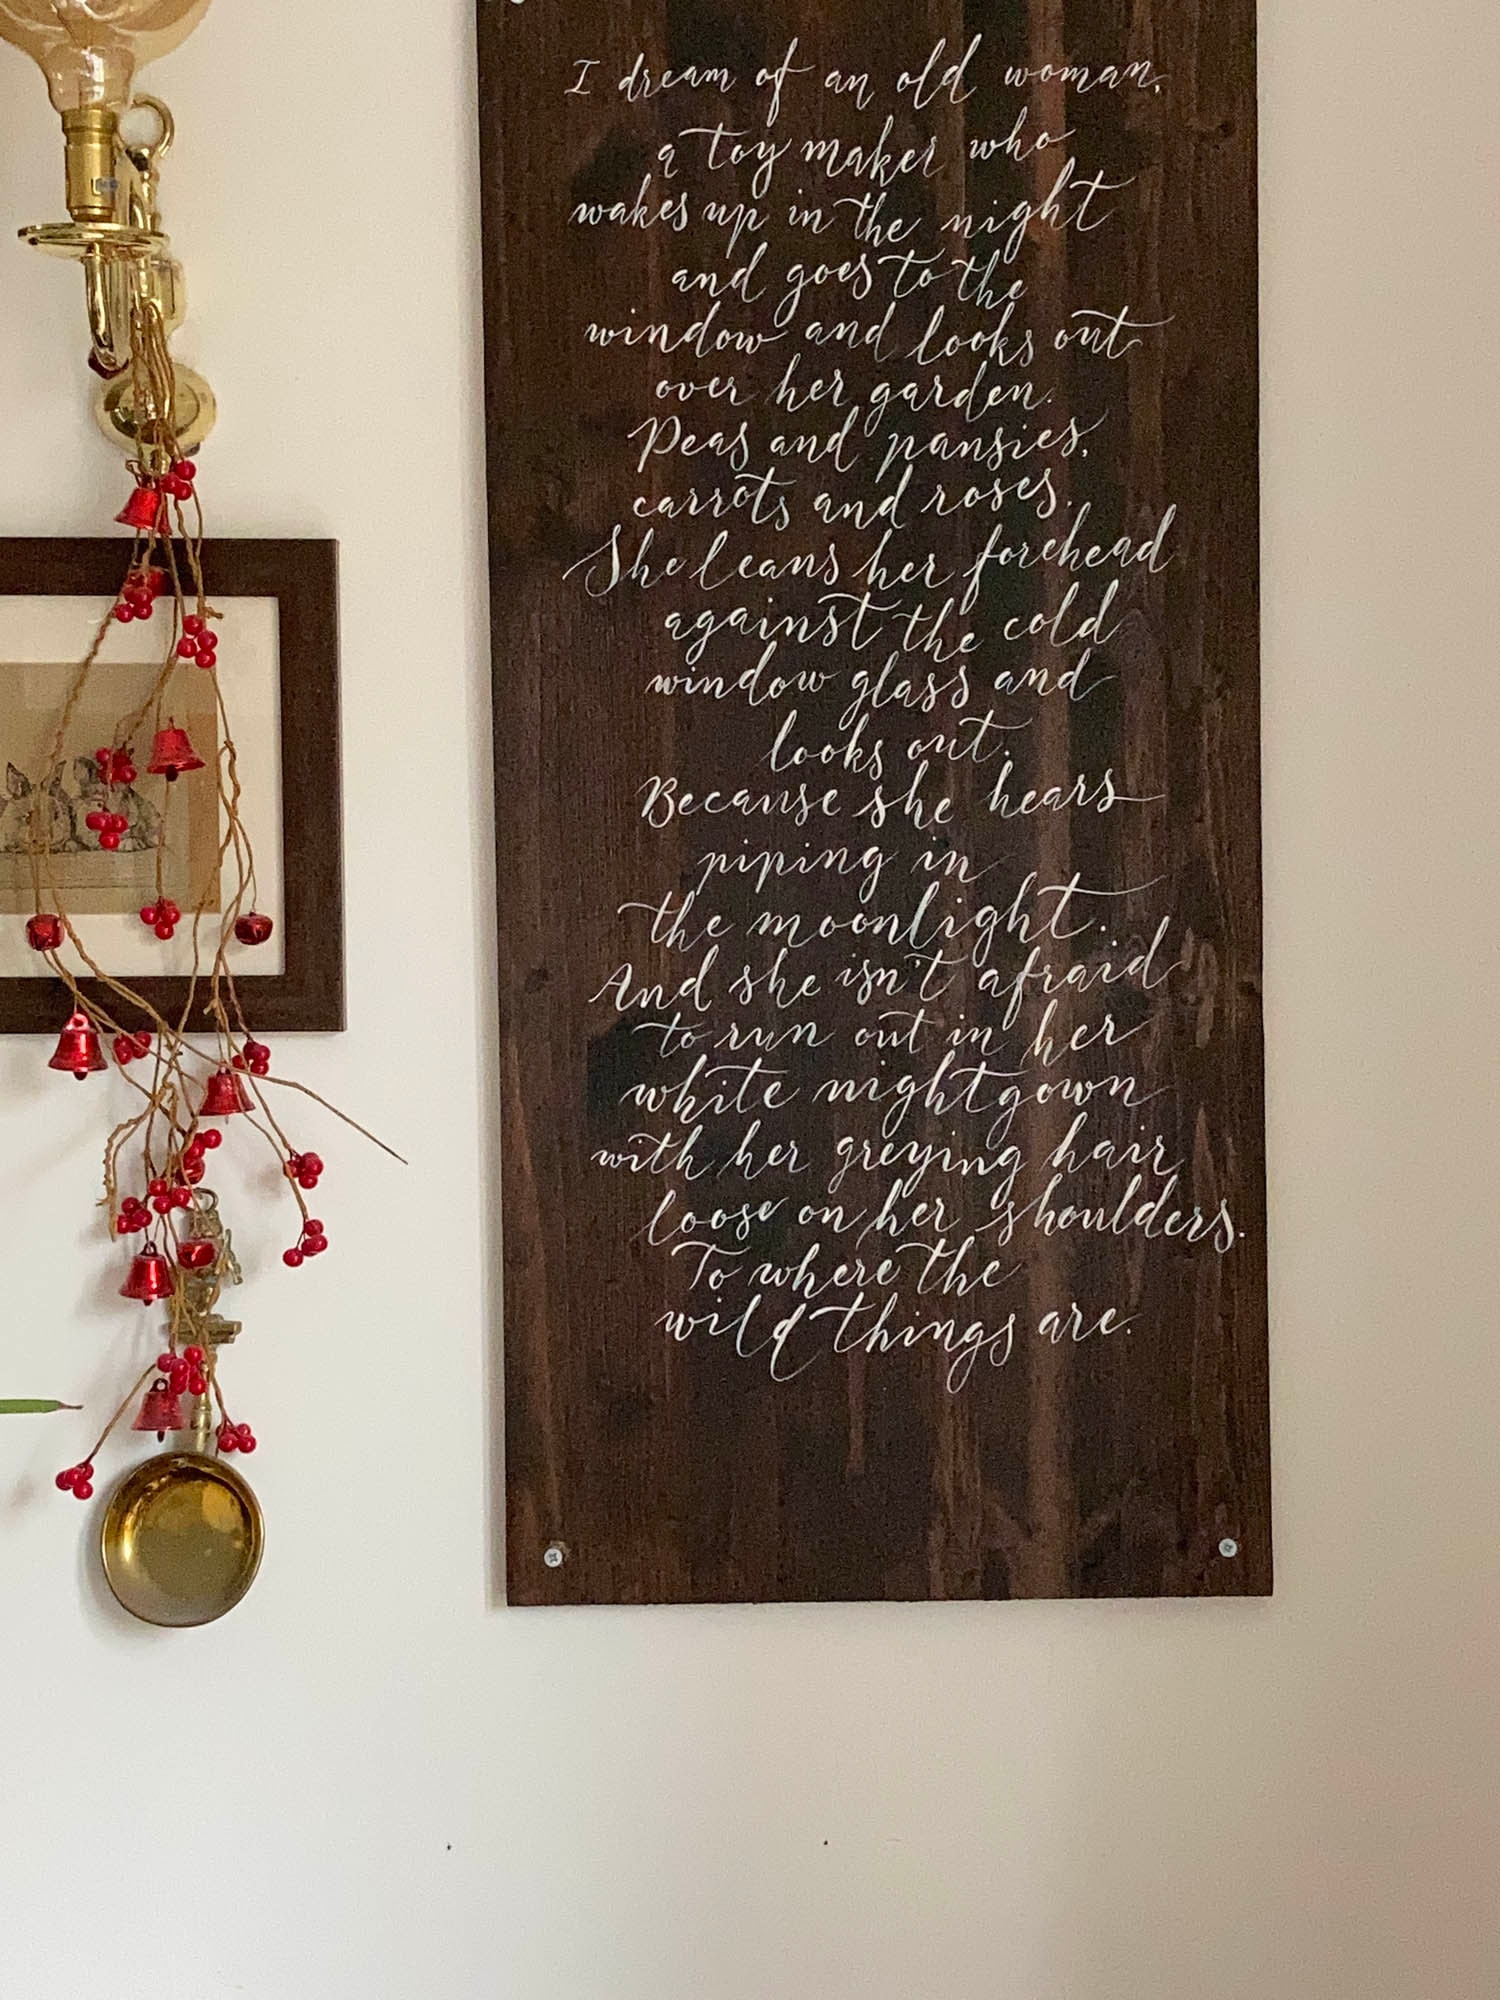 I dream of an old woman,
a toy maker who
wakes up in the night
and goes to the
window and looks out
over her garden.
Peas and pansies,
carrots and roses.
She leans her forehead
against the cold
window glass and
looks out.
Because she hears
piping in
the moonlight.
And she isn't afraid
to run out in her
white nightgown
with her greying hair
loose on her shoulders.
To where the
wild things are.